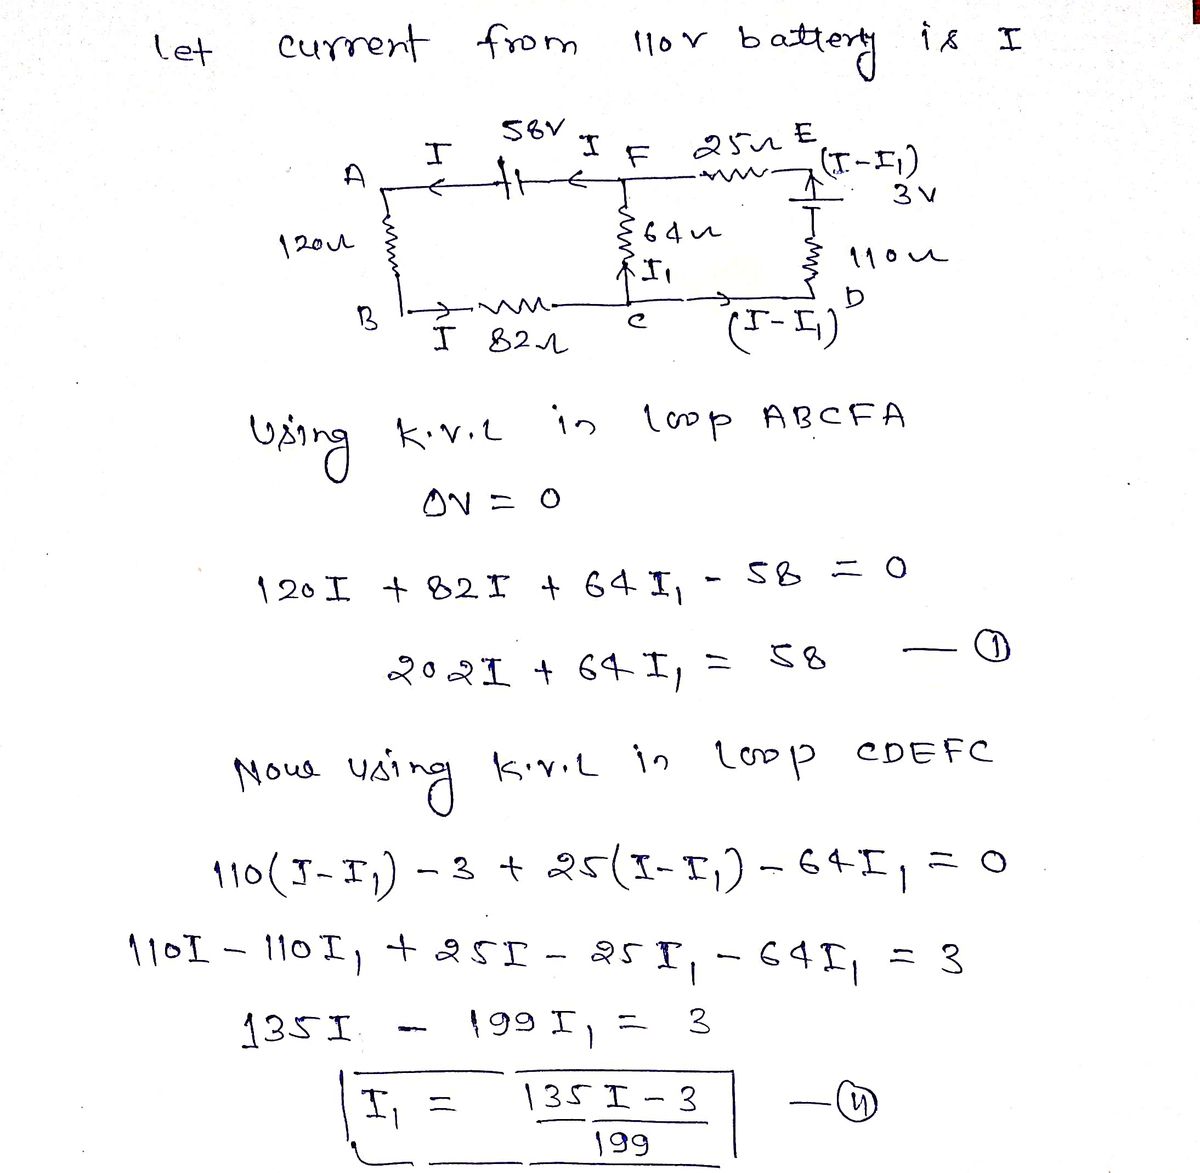 let current from 110v battery is I
58V
I
I
F
25Ω
E
(I-I₁)
A
3v
120Ω
64Ω
110Ω
I₁
B
I
82Ω
C
D
(I-I₁)
Using K.V.L in loop ABCFA
ΔV = 0
120I + 82I + 64I₁ - 58 = 0
202I + 64I₁ = 58 — ①
Now using K.V.L in loop CDEFC
110(I-I₁) - 3 + 25(I-I₁) - 64I₁ = 0
110I - 110I₁ + 25I - 25I₁ - 64I₁ = 3
135I - 199I₁ = 3
I₁ = 135I - 3 / 199 — ⑪